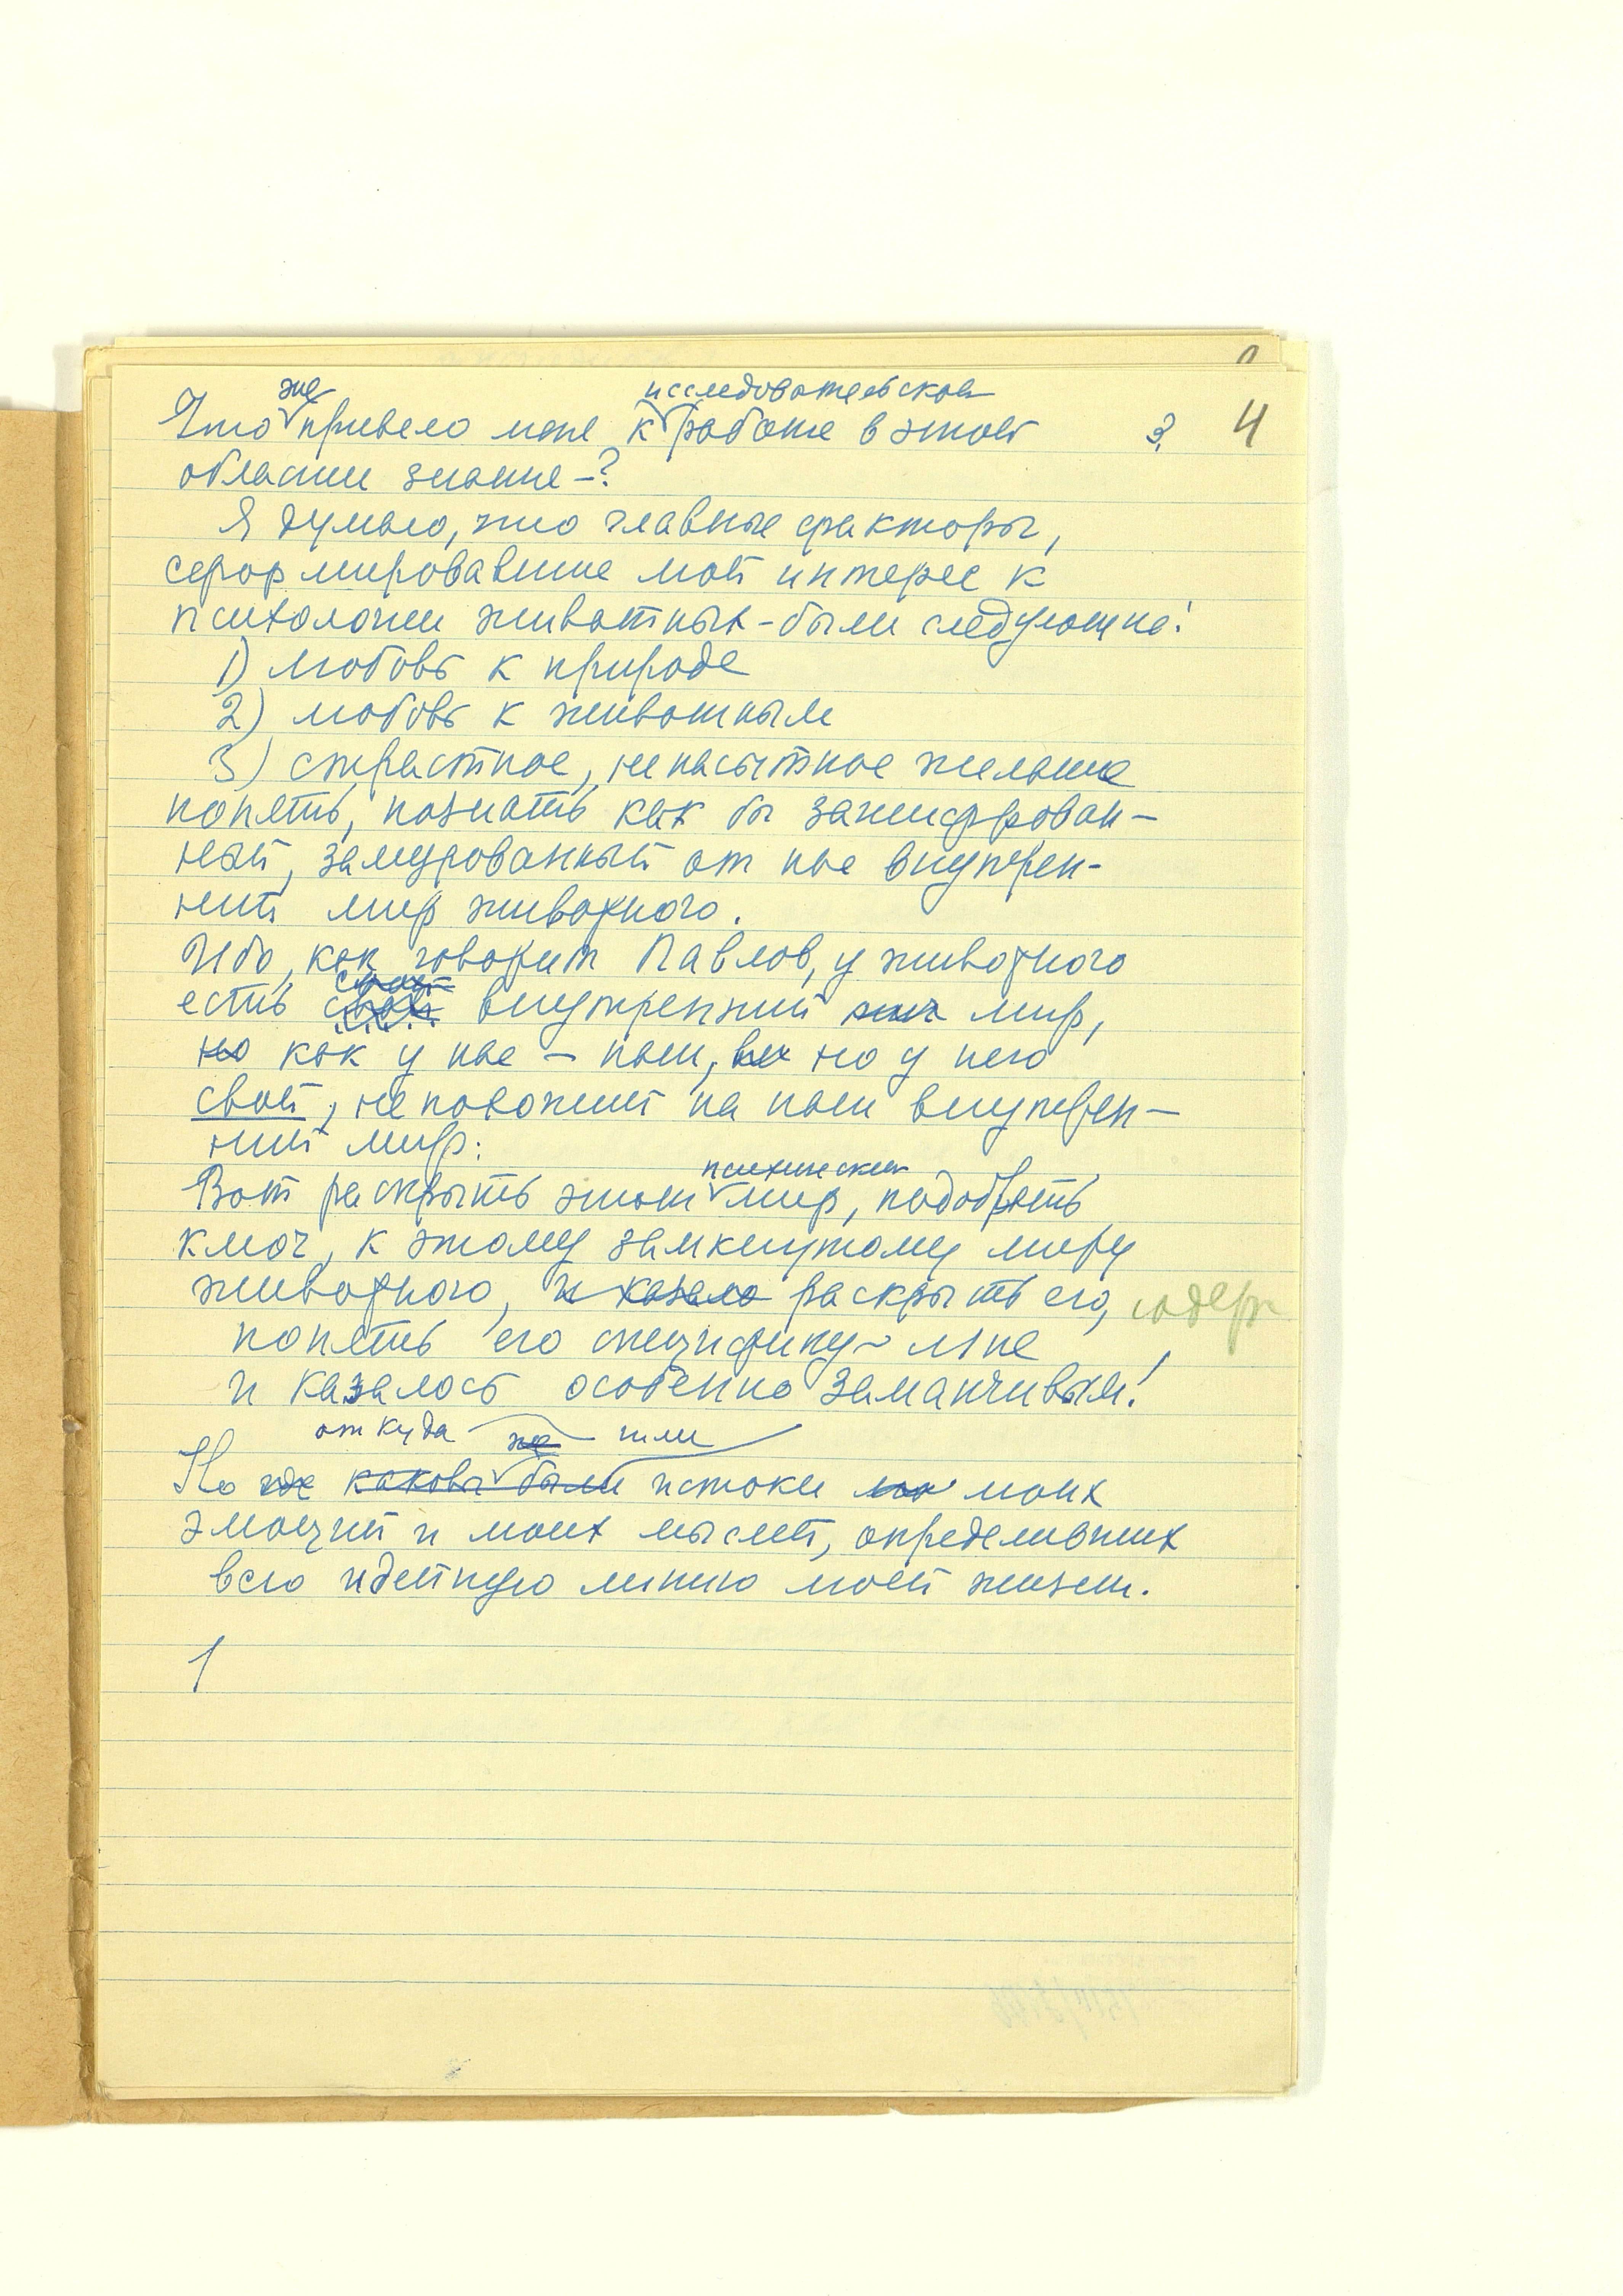 Что же привело меня к исследовательской работе в этой 3. 4
области знание-?
Я думаю, что главные факторы,
сформировавшие мой интерес к
психологии животных - были следующие:
1) любовь к природе
2) любовь к животным
3) страстное, ненасытное желание
понять, познать как бы зашифрован-
ный, замурованный от нас внутрен-
ний мир животного.
Ибо, как говорит Павлов, у животного
есть свой внутренний мир,
но как у нас – наш, но у него
свой, не похожий на наш внутрен-
ний мир:
Вот раскрыть этот психический мир, подобрать
ключ, к этому замкнутому миру
животного, и казало раскрыть его, содерж
понять его специфику – мне
и казалось особенно заманчивым!
откуда же шли
Но где каковы были истоки моих
эмоций и моих мыслей, определивших
всю идейную линию моей жизни.
1